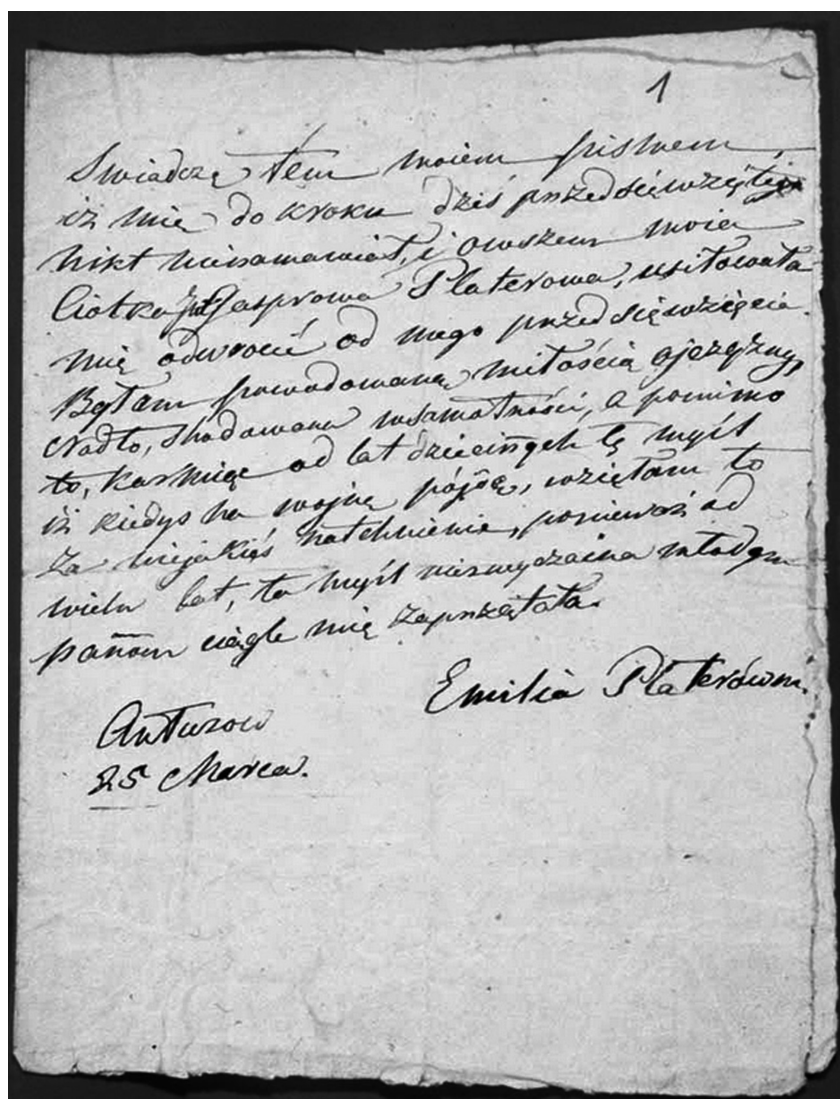 1
Swiadczę tem moiem pismem,
iż mię do kroku dziś przedsięwziętego
nikt nienamawiał, i owszem moia
Ciotka Gasprowa Platerowa, usiłowała
mię odwrocić od mego przedsięwzięcia.
Byłam powodowaną miłością ojczyzny,
Nadto, chodowana wsamotności, a pomimo
to, karmiąc od lat dziecinnych tę myśl
iż kiedys na wojnę pójdę, wzięłam to
za niejakieś natchnienie, ponieważ od
wielu lat, ta myśl niezwyczaina młodym
pannom ciągle mię zaprzątała.
Emilia Platerówna.
Antuzow
25 Marca.